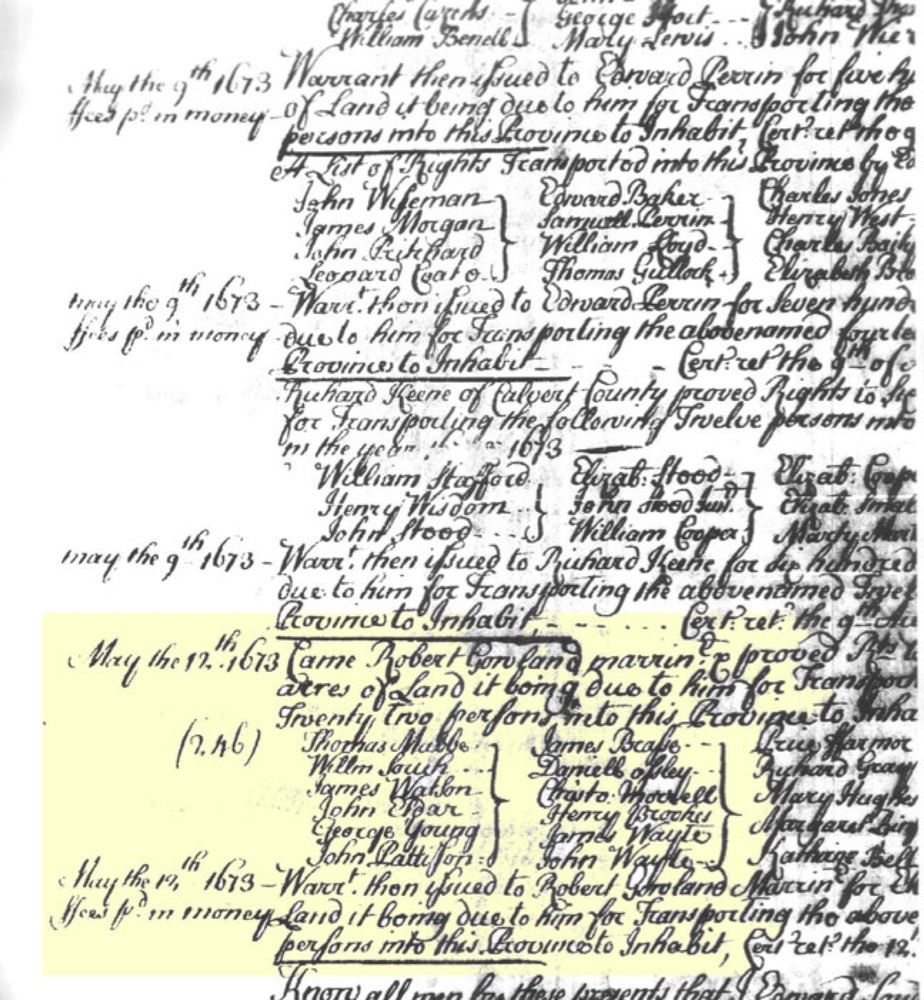 Charles Carens - George Hoit - - - Richard
William Benell Mary Lewis - - John
May the 9th 1673 Warrant then issued to Edward Perrin for five hu
ffees pd. in money - of Land it being due to him for Transporting the
persons into this Province to Inhabit, Cert: ret: the 9
A List of Rights Transported into this Province by Ed
John Wiseman Edward Baker Charles Jones
James Morgan Samuell Perrin Henry West
John Pritchard William Loyd Charles
Leonard Coate Thomas Gullock Elizabeth
may the 9th 1673 - Warrt. then issued to Edward Perrin for Seven hund
ffees pd. in money due to him for Transporting the abovenamed fourte
Province to Inhabit - - - Cert: ret: the 9th of
Richard Keene of Calvert County proved Rights to
for Transporting the following Twelve persons into
in the year 1673
William Stafford Elizab: Stood Elizab: Coop
Henry Wisdom John Stood Junr. Elizab:
John Stood William Cooper
may the 9th 1673 - Warrt. then issued to Richard Keene for six hundred
due to him for Transporting the abovenamed Twel
Province to Inhabit - - - - Cert: ret: the 9th
May the 12th 1673 Came Robert Gowland marrinr. & proved Rts
acres of Land it being due to him for Transport
Twenty two persons into this Province to Inha
Thomas Mabbe James Brase Prue Harmor
(246)
Willm South Daniell Ossley Richard Gray
James Watson Christo: Morrell Mary Hughe
John Eldar Henry Brookes Margaret
George Young James Wayte Katharine Bell
John Pattison John Wayte
May the 12th 1673 - Warrt. then issued to Robert Gowland Marrinr for
ffees pd. in money Land it being due to him for Transporting the above
persons into this Province to Inhabit, Cert: ret: the 12.
Know all men by these presents that I Edward